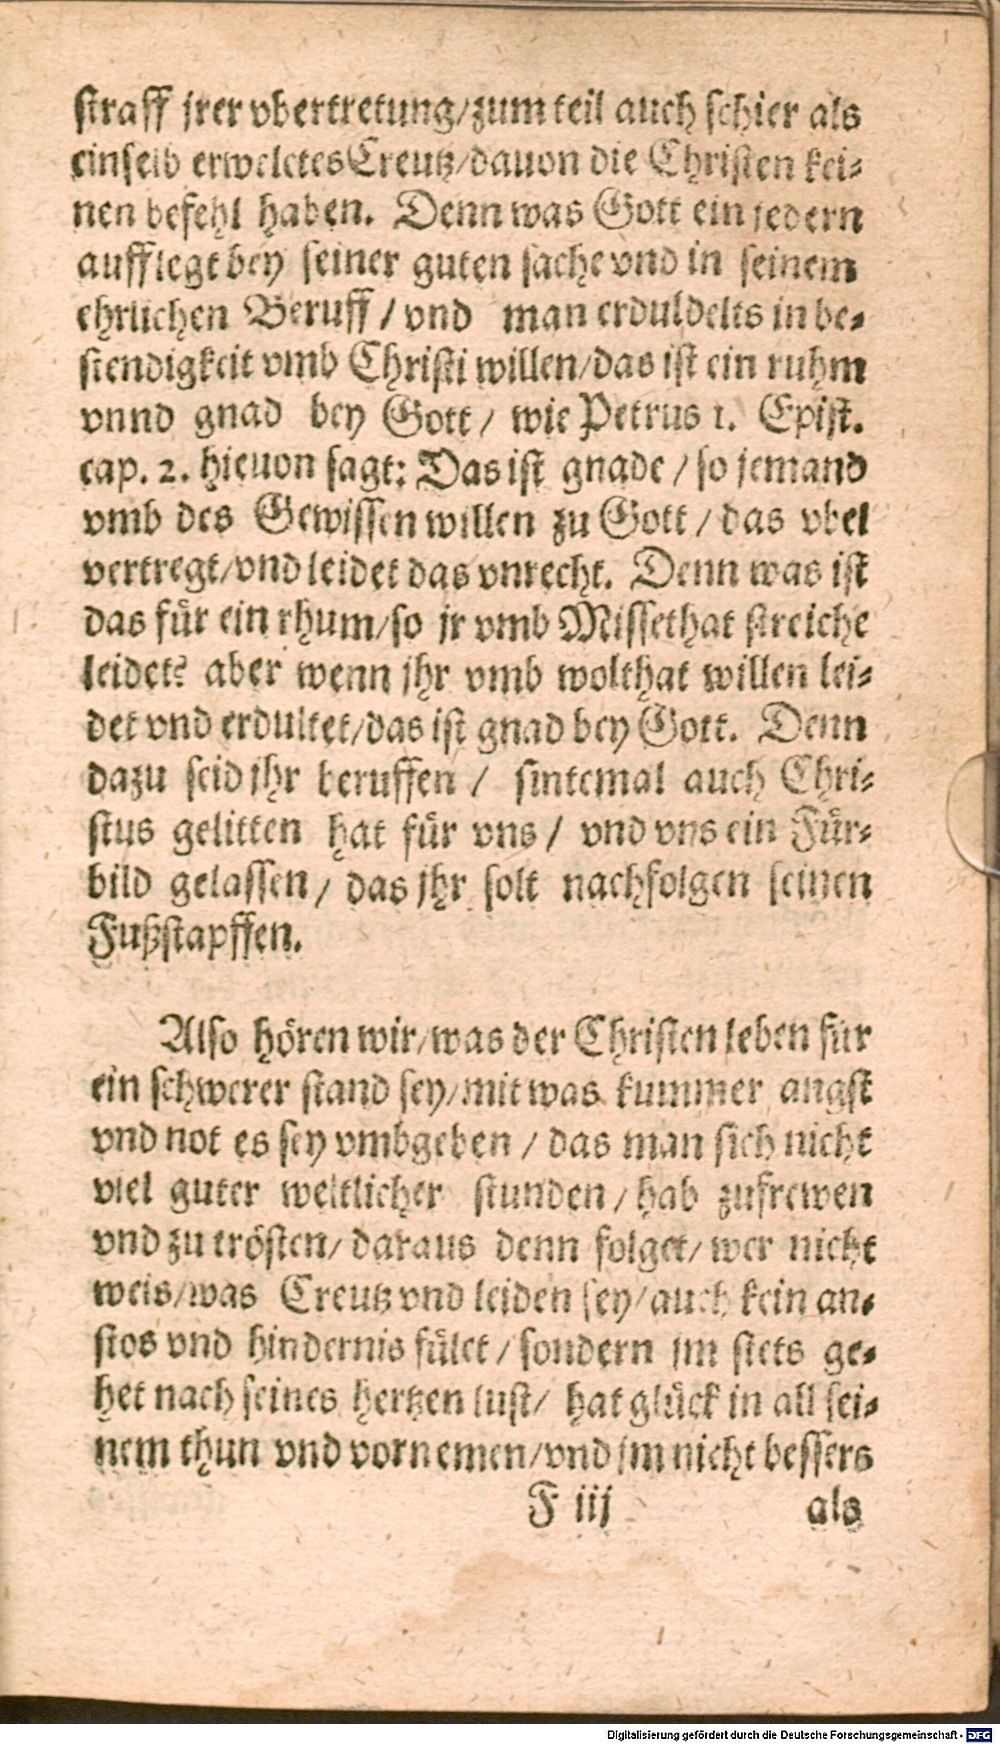 straff jrer vbertretung/zum teil auch schier als
einselb erweletes Creutz/dauon die Christen kei-
nen befehl haben. Denn was Gott ein jedern
aufflegt bey seiner guten sache vnd in seinem
ehrlichen Beruff / vnd man erduldelts in be-
stendigkeit vmb Christi willen/das ist ein ruhm
vnnd gnad bey Gott / wie Petrus 1. Epist.
cap. 2. hieuon sagt: Das ist gnade / so jemand
vmb des Gewissen willen zu Gott / das vbel
vertregt/vnd leidet das vnrecht. Denn was ist
das für ein rhum/so jr vmb Missethat streiche
leidet? aber wenn jhr vmb wolthat willen lei-
det vnd erdultet/das ist gnad bey Gott. Denn
dazu seid jhr beruffen / sintemal auch Chri-
stus gelitten hat für vns / vnd vns ein Für-
bild gelassen / das jhr solt nachfolgen seinen
Fußstapffen.
Also hören wir/was der Christen leben für
ein schwerer stand sey/mit was kummer angst
vnd not es sey vmbgeben / das man sich nicht
viel guter weltlicher stunden / hab zufrewen
vnd zu trösten/ daraus denn folget/ wer nicht
weis/was Creutz vnd leiden sey/auch kein an-
stos vnd hindernis fület / sondern jm stets ge-
het nach seines hertzen lust/ hat glück in all sei-
nem thun vnd vornemen/vnd jm nicht bessers
F iij als
Digitalisierung gefördert durch die Deutsche Forschungsgemeinschaft - DFG